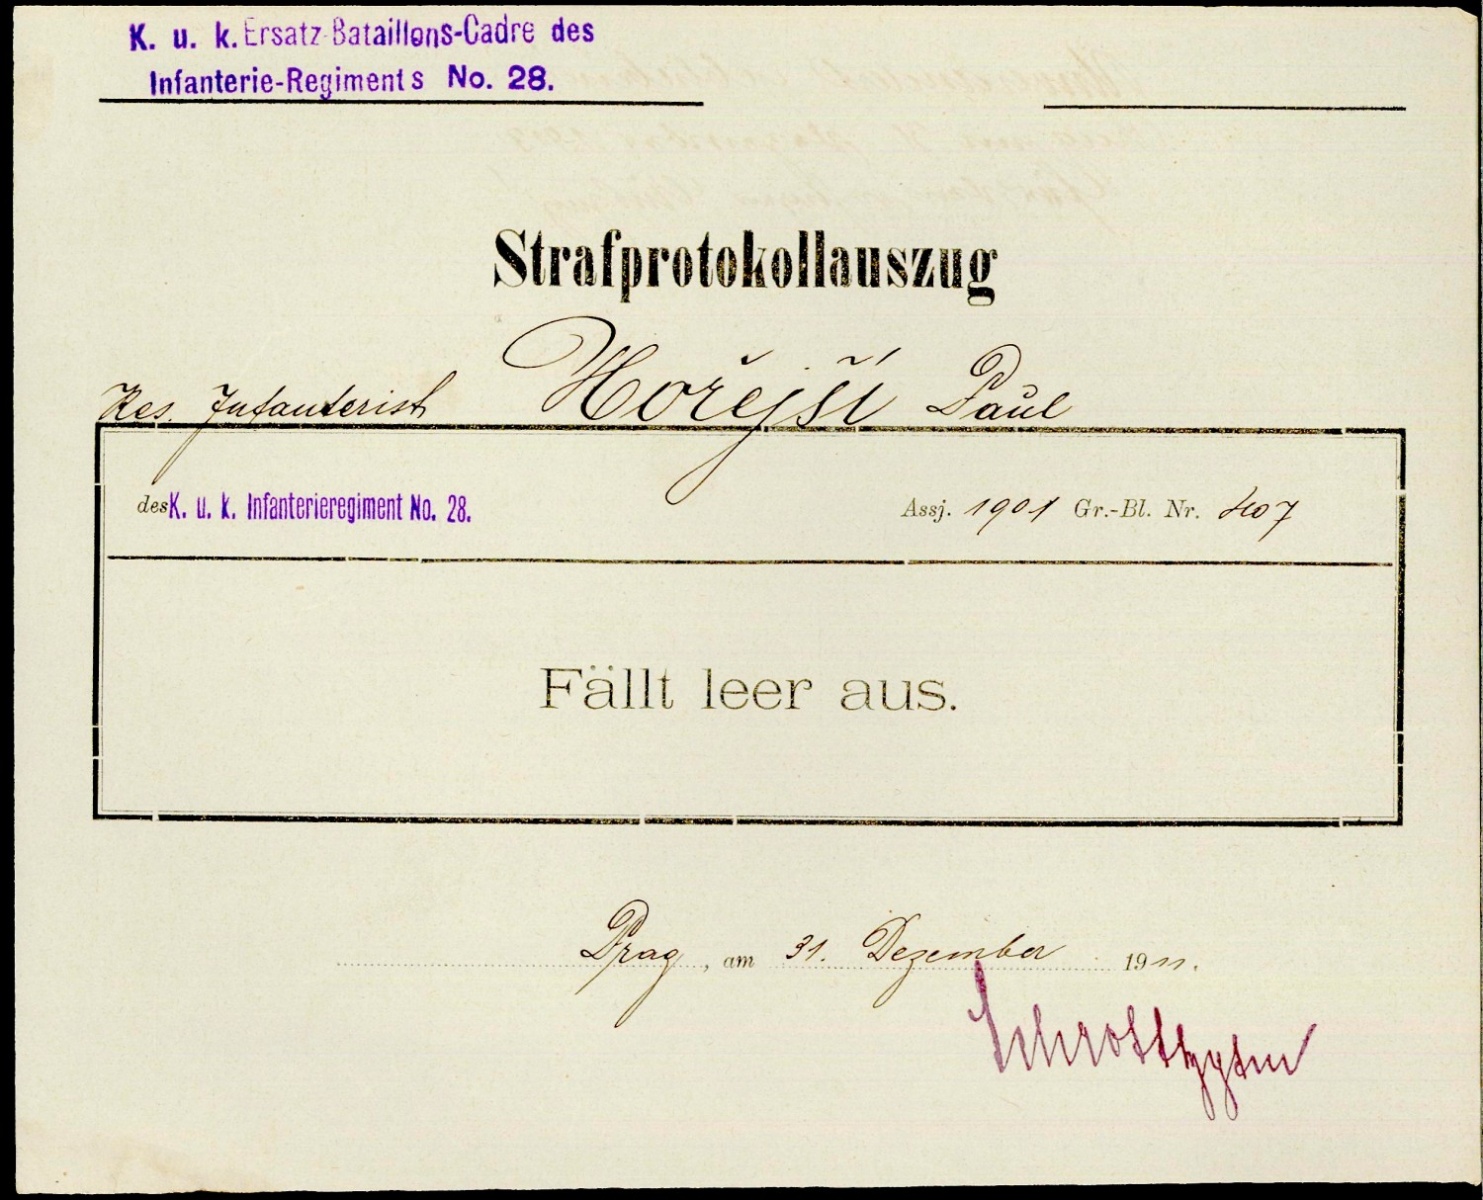 K. u. k. Ersatz-Bataillons-Cadre des
Infanterie-Regiments No. 28.
Strafprotokollauszug
Res. Infanterist Hořejší Paul
des K. u. k. Infanterieregiment No. 28. Assj. 1901 Gr.-Bl. Nr. 407
Fällt leer aus.
Prag, am 31. Dezember 1911.